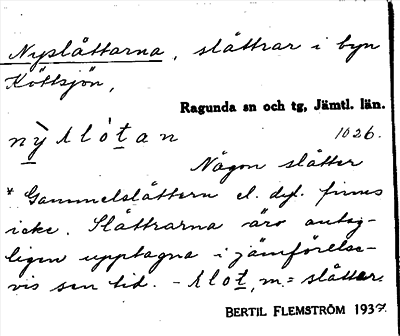 Nyslåttarna, slåttrar i byn
Köttsjön,
Ragunda sn och tg, Jämtl. län.
nỳ slòtan 1026.
Någon slåtter
* Gammelslåttern el. dyl. finns
icke. Slåttrarna äro antag-
ligen upptagna i jämförelse-
vis sen tid. - slot, m = slåtter.
BERTIL FLEMSTRÖM 1937.